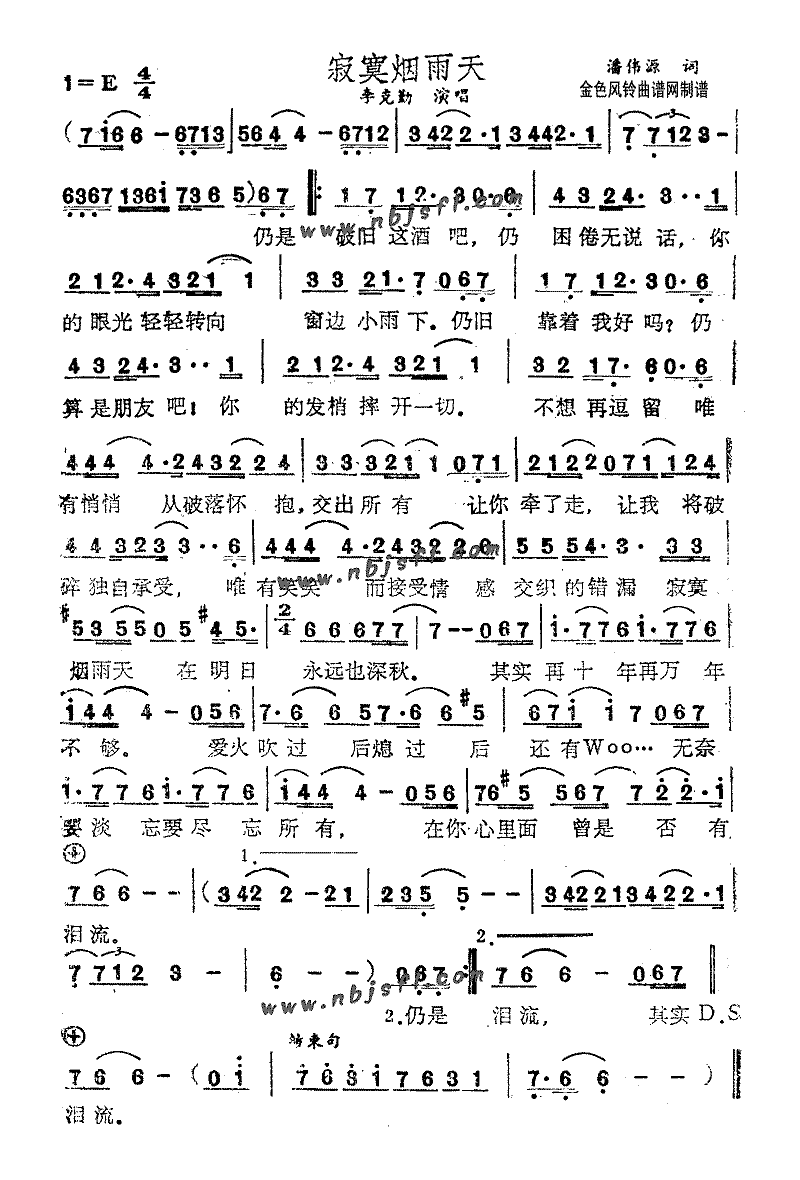 寂寞烟雨天
1=E 4/4
李克勤 演唱
潘伟源 词
金色风铃曲谱网制谱
(7i66-6713 | 5644-6712 | 3422·13442·1 | 77123-
63671 3 6i 7365)67 ‖: 17 12·30·6 | 4324·3··1
www.nbjsfl.com
仍是 破旧这酒吧,仍 困倦无说话,你
212·4321 1 | 33 21·7 067 | 17 12·30·6
的眼光轻轻转向 窗边小雨下。仍旧 靠着我好吗?仍
4324·3··1 | 212·4321 1 | 32 17·60·6
算是朋友吧!你 的发梢摔开一切。 不想再逗留 唯
444 4·2432 24 | 3332 11 071 | 2122071124
有悄悄 从破落怀 抱,交出所有 让你牵了走,让我将破
443233··6 | 444 4·24322 26 | 5554·3· 33
碎独自承受, 唯有笑笑 而接受情感 交织的错漏 寂寞
#535505 #45· | 2/4 66677 | 7--067 | i·776i·776
烟雨天 在明日 永远也深秋。 其实再十年再万年
i444-056 | 7·6657·66#5 | 67i i7067
不够。 爱火吹过 后熄过后 还有Woo… 无奈
i·776i·776 | i444-056 | 76#5567 72·2·i
要淡忘要尽忘所有, 在你心里面曾是否有
1.
766-- | (3422-21 | 2355-- | 342213422·1
泪流。
2.
77123- | 6--)067 :‖ 766-067 ‖
www.nbjsfl.com
2.仍是 泪流, 其实D.S
结束句
766-(0i | 763i7631 | 7·66--)‖
泪流。